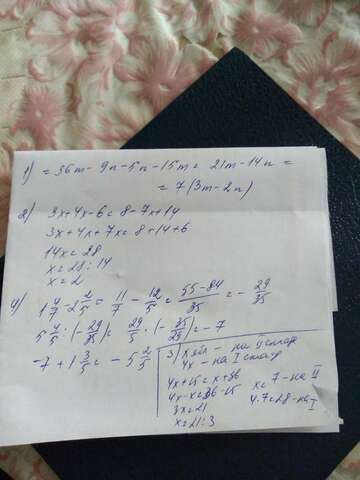 1) = 36m - 9n - 5n - 15m = 21m - 14n =
= 7(3m - 2n)
2) 3x + 4x - 6 = 8 - 7x + 14
3x + 4x + 7x = 8 + 14 + 6
14x = 28
x = 28 : 14
x = 2
4) 1 4/7 - 2 2/5 = 11/7 - 12/5 = 55-84/35 = - 29/35
5 4/5 : (- 29/35) = 29/5 · (- 35/29) = -7
-7 + 1 3/5 = - 5 2/5
3) x - на II склад
4x - на I склад
4x + 15 = x + 36
4x - x = 36 - 15
3x = 21
x = 21 : 3
x = 7 - на II
4 · 7 = 28 - на I